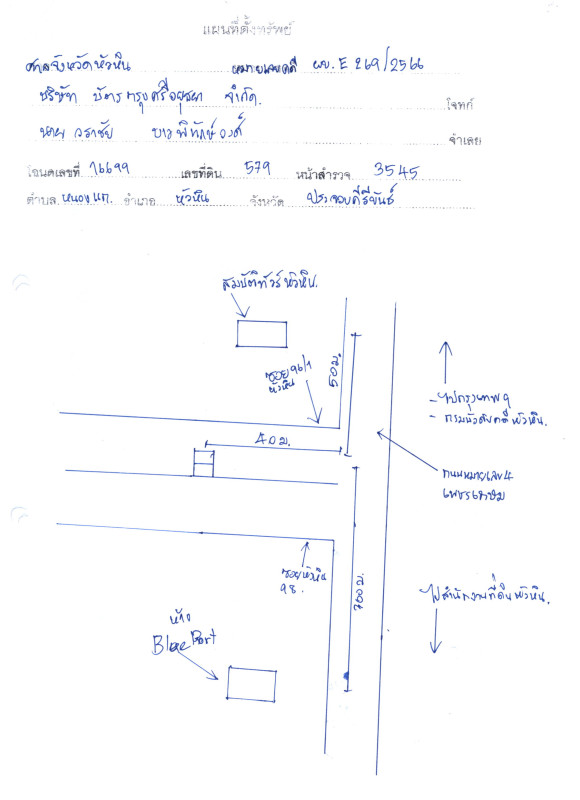 แผนที่ตั้งทรัพย์
ศาลจังหวัดหัวหิน หมายเลขคดี ผบ.E 269/2566
บริษัท บัตรกรุงศรีอยุธยา จำกัด. โจทก์
นาย วราชัย บวรพิทักษ์วงศ์ จำเลย
โฉนดเลขที่ 16699 เลขที่ดิน 579 หน้าสำรวจ 3545
ตำบล หนองแก. อำเภอ หัวหิน จังหวัด ประจวบคีรีขันธ์
สมบัติทัวร์หัวหิน.
ซอย 96/1
หัวหิน
50 ม.
40 ม.
- ไปกรุงเทพฯ
- กรมบังคับคดีหัวหิน.
ถนนหมายเลข 4
เพชรเกษม
ซอยหัวหิน
98.
700 ม.
ไปสำนักงานที่ดินหัวหิน.
ห้าง
Blue Port